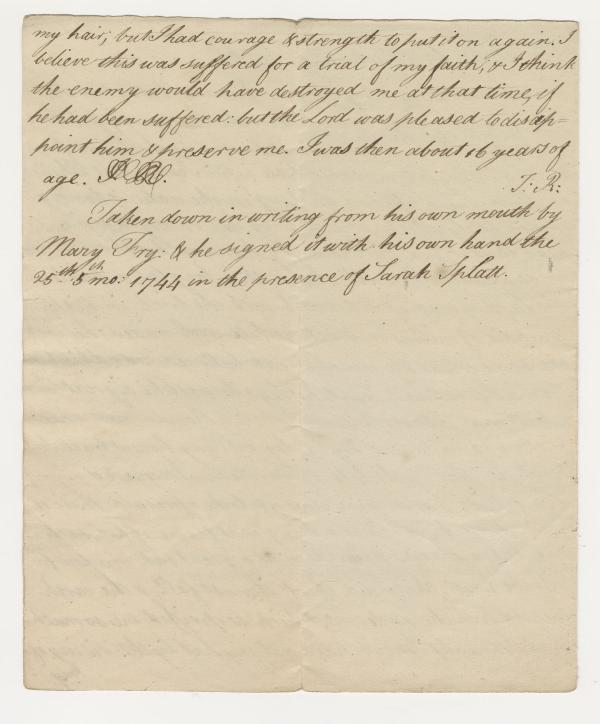 my hair; but I had courage & strength to put it on again. I
believe this was suffered for a trial of my faith, & I think
the enemy would have destroyed me at that time, if
he had been suffered: but the Lord was pleased to disap=
point him & preserve me. I was then about 16 years of
age.
T: R:
Taken down in writing from his own mouth by
Mary Fry: & he signed it with his own hand the
25th 5th mo: 1744 in the presence of Sarah Splatt.